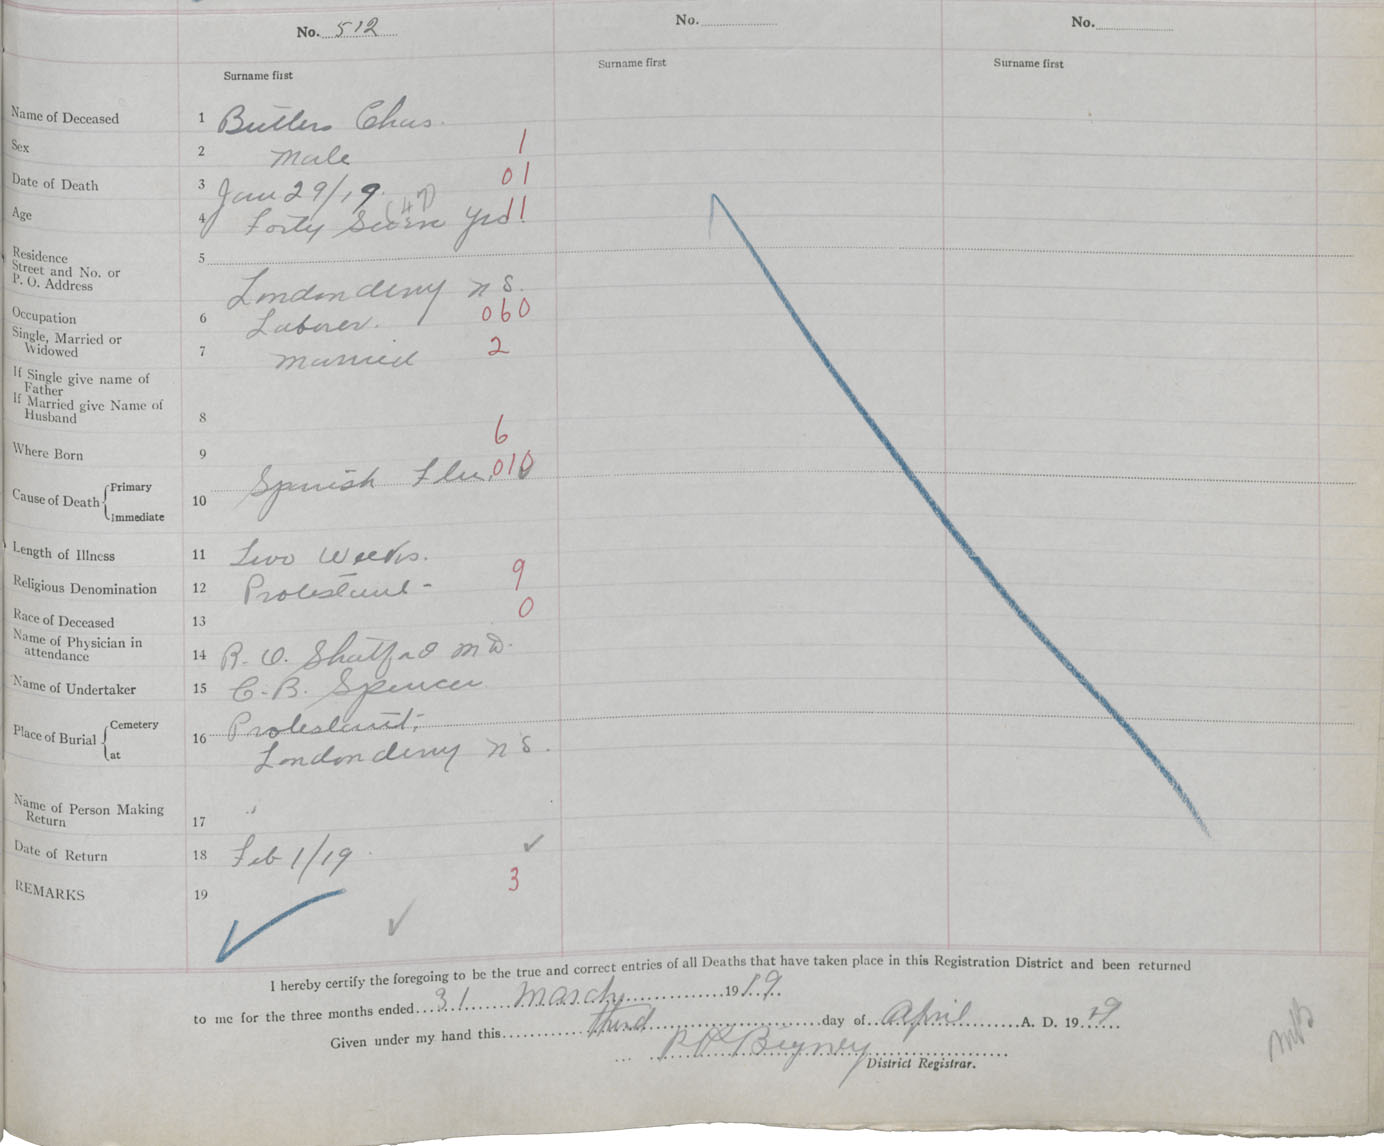 No. 512
No.
No.
Surname first
Surname first
Surname first
Name of Deceased 1 Butler Chas.
Sex 2 Male 1
Date of Death 3 Jan 29/19. 01
Age 4 Forty Seven yrs (47) 11
Residence
Street and No. or
P. O. Address 5 Londonderry N S.
Occupation 6 Laborer. 060
Single, Married or
Widowed 7 Married 2
If Single give name of
Father
If Married give Name of
Husband 8
6
Where Born 9
Cause of Death { Primary
Immediate 10 Spanish Flu. 010
Length of Illness 11 Two Weeks.
Religious Denomination 12 Protestant - 9
Race of Deceased 13 0
Name of Physician in
attendance 14 R. O. Shatford M D.
Name of Undertaker 15 C. B. Spencer
Place of Burial { Cemetery
at 16 Protestant,
Londonderry N S.
Name of Person Making
Return 17 "
Date of Return 18 Feb 1/19 ✓
REMARKS 19 3
I hereby certify the foregoing to be the true and correct entries of all Deaths that have taken place in this Registration District and been returned
to me for the three months ended 31 March 1919.
Given under my hand this third day of April A. D. 1919
District Registrar.